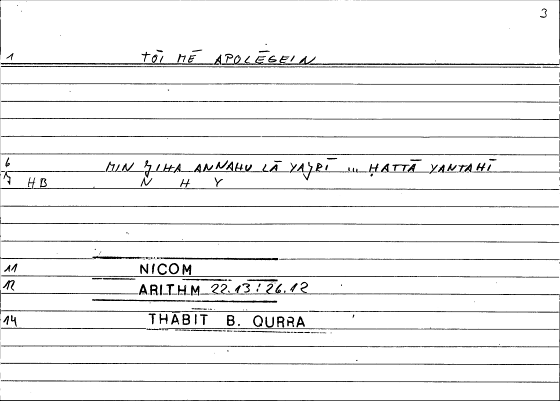 3
1 TŌI MĒ APOLĒGEIN
6 MIN ǦIHA ANNAHU LĀ YAǦRĪ ... ḤATTĀ YANTAHĪ
7 HB N H Y
11 NICOM
12 ARITHM 22.13 : 26.12
14 THĀBIT B. QURRA